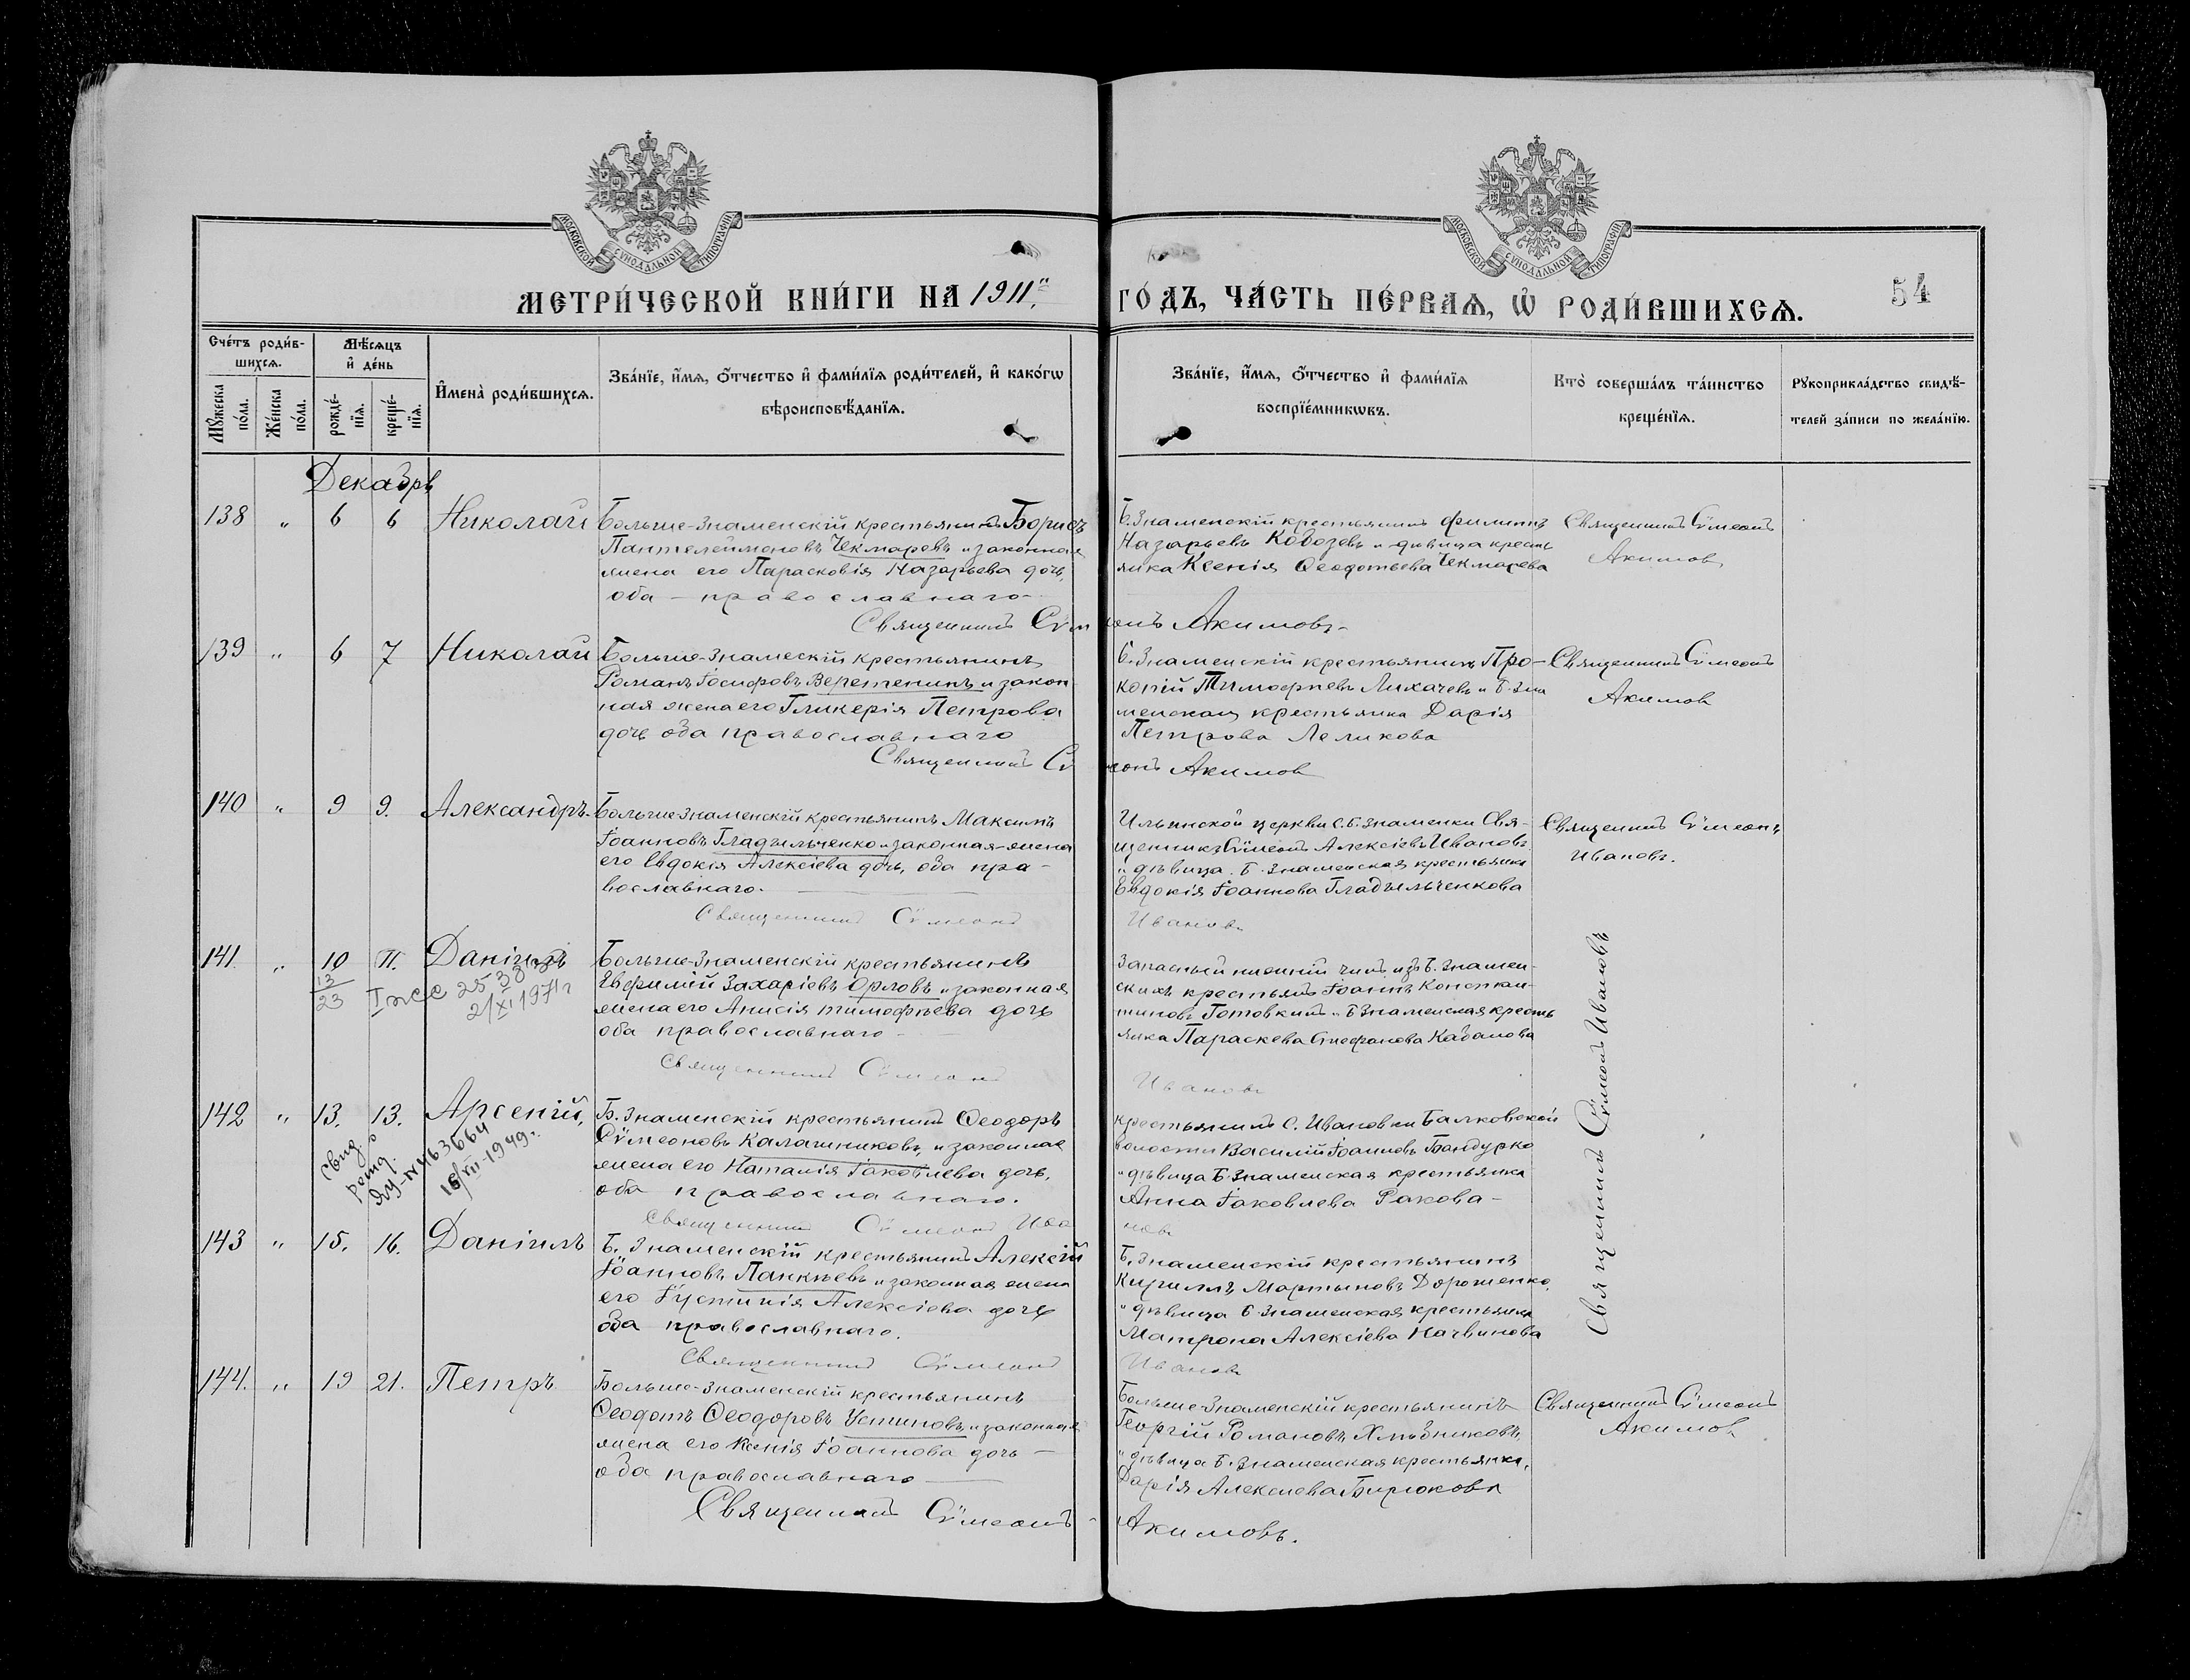 МОСКОВСКОЙ СУНОДАЛЬНОЙ ТИПОГРАФІИ
МОСКОВСКОЙ СУНОДАЛЬНОЙ ТИПОГРАФІИ
МЕТРИ́ЧЕСКОЙ КНИ́ГИ НА 1911 ГО́ДЪ, ЧА́СТЬ ПЕ́РВАѦ, Ѡ҆ РОДИ́ВШИХСѦ.
54
Сче́тъ роди́в-
шихсѧ.
Мѣ́сѧцъ
и҆ де́нь
Мꙋ́жеска
по́ла.
Же́нска
по́ла.
рожде́-
нїѧ.
креще́-
нїѧ.
И҆мена̀ роди́вшихсѧ.
Зва́нїе, и҆́мѧ, ѻ҆́тчество и҆ фами́лїѧ роди́телей, и҆ како́гѡ
вѣроисповѣ́данїѧ.
Зва́нїе, и҆́мѧ, ѻ҆́тчество и҆ фами́лїѧ
воспрїе́мникѡвъ.
Кто̀ соверша́лъ та́инство
креще́нїѧ.
Рꙋкоприкла́дство свидѣ́-
телей за́писи по жела́нїю.
Декабрь
138 " 6 6 Николай
Больше-Знаменскій крестьянинъ Борисъ
Пантелеймоновъ Чекмаревъ и законная
жена его Парасковія Назарьева дочь,
оба - православнаго
Б. Знаменскій крестьянинъ Филиппъ
Назарьевъ Кобозевъ и дѣвица кресть
янка Ксенія Ѳеодотьева Чекмарева
Священникъ Сѵмеонъ
Акимовъ
Священникъ Сѵмеонъ Акимовъ
139 " 6 7 Николай
Больше-Знамескій крестьянинъ
Романъ Іосифовъ Веретенинъ и закон
ная жена его Гликерія Петрова
дочь оба православнаго
Б. Знаменскій крестьянинъ Про-
копій Тимофѣевъ Лихачевъ и Б. Зна
менская крестьянка Дарія
Петрова Леликова
Священникъ Сѵмеонъ
Акимов
Священникъ Сѵмеонъ Акимов
140 " 9 9. Александръ.
Больше Знаменскій крестьянинъ Максимъ
Іоанновъ Гладыльченко и законная жена
его Евдокія Алексіева дочь, оба пра-
вославнаго.
Ильинской церкви С. Б. Знаменки Свя-
щенникъ Сѵмеонъ Алексіевъ Ивановъ
и дѣвица Б. Знаменская крестьянка
Евдокія Іоаннова Гладыльченкова
Священникъ Сѵмеонъ
Ивановъ.
Священникъ Сѵмеонъ Ивановъ
141. " 10 11. Даніилъ
13
23
21/XI 1971 г
Больше-Знаменскій крестьянинъ
Евфимій Захаріевъ Орловъ и законная
жена его Анисія Тимофѣева дочь
оба православнаго
Запасный нижній чинъ изъ Б. Знамен-
скихъ крестьянъ Іоаннъ Констан-
тиновъ Готовкинъ и Б Знаменская кресть
янка Параскева Стефанова Кабанова
Священникъ Сѵмеонъ Ивановъ
Священникъ Сѵмеонъ Ивановъ
142 " 13. 13. Арсеній,
Свид о
рожд.
ЯУ-№463664
16/VII-1949 г.
Б. Знаменскій крестьянинъ Ѳеодоръ
Сѵмеоновъ Калашниковъ, и законная
жена его Наталія Іаковлева дочь,
оба православнаго.
Крестьянинъ С. Ивановки Балковской
волости Василій Іоанновъ Бандурко
и дѣвица Б. Знаменская крестьянка
Анна Іаковлева Ракова
Священникъ Сѵмеонъ Ивановъ
143 " 15. 16. Даніилъ
Б. Знаменскій крестьянинъ Алексій
Іоанновъ Панкѣевъ и законная жена
его Іустинія Алексіева дочь
оба православнаго.
Б. Знаменскій крестьянинъ
Кириллъ Мартыновъ Дорошенко,
и дѣвица Б. Знаменская крестьянка
Матрона Алексіева Начвинова
Священникъ Сѵмеонъ Ивановъ
144. " 19 21. Петръ
Больше-Знаменскій крестьянинъ
Ѳеодотъ Ѳеодоровъ Устиновъ, и законная
жена его Ксенія Іоаннова дочь
оба православнаго
Больше-Знаменскій крестьянинъ
Георгій Романовъ Хлѣбниковъ,
и дѣвица Б. Знаменская крестьянка,
Дарія Алексиева Бирюкова
Священникъ Сѵмеонъ
Акимов
Священникъ Сѵмеонъ Акимовъ.